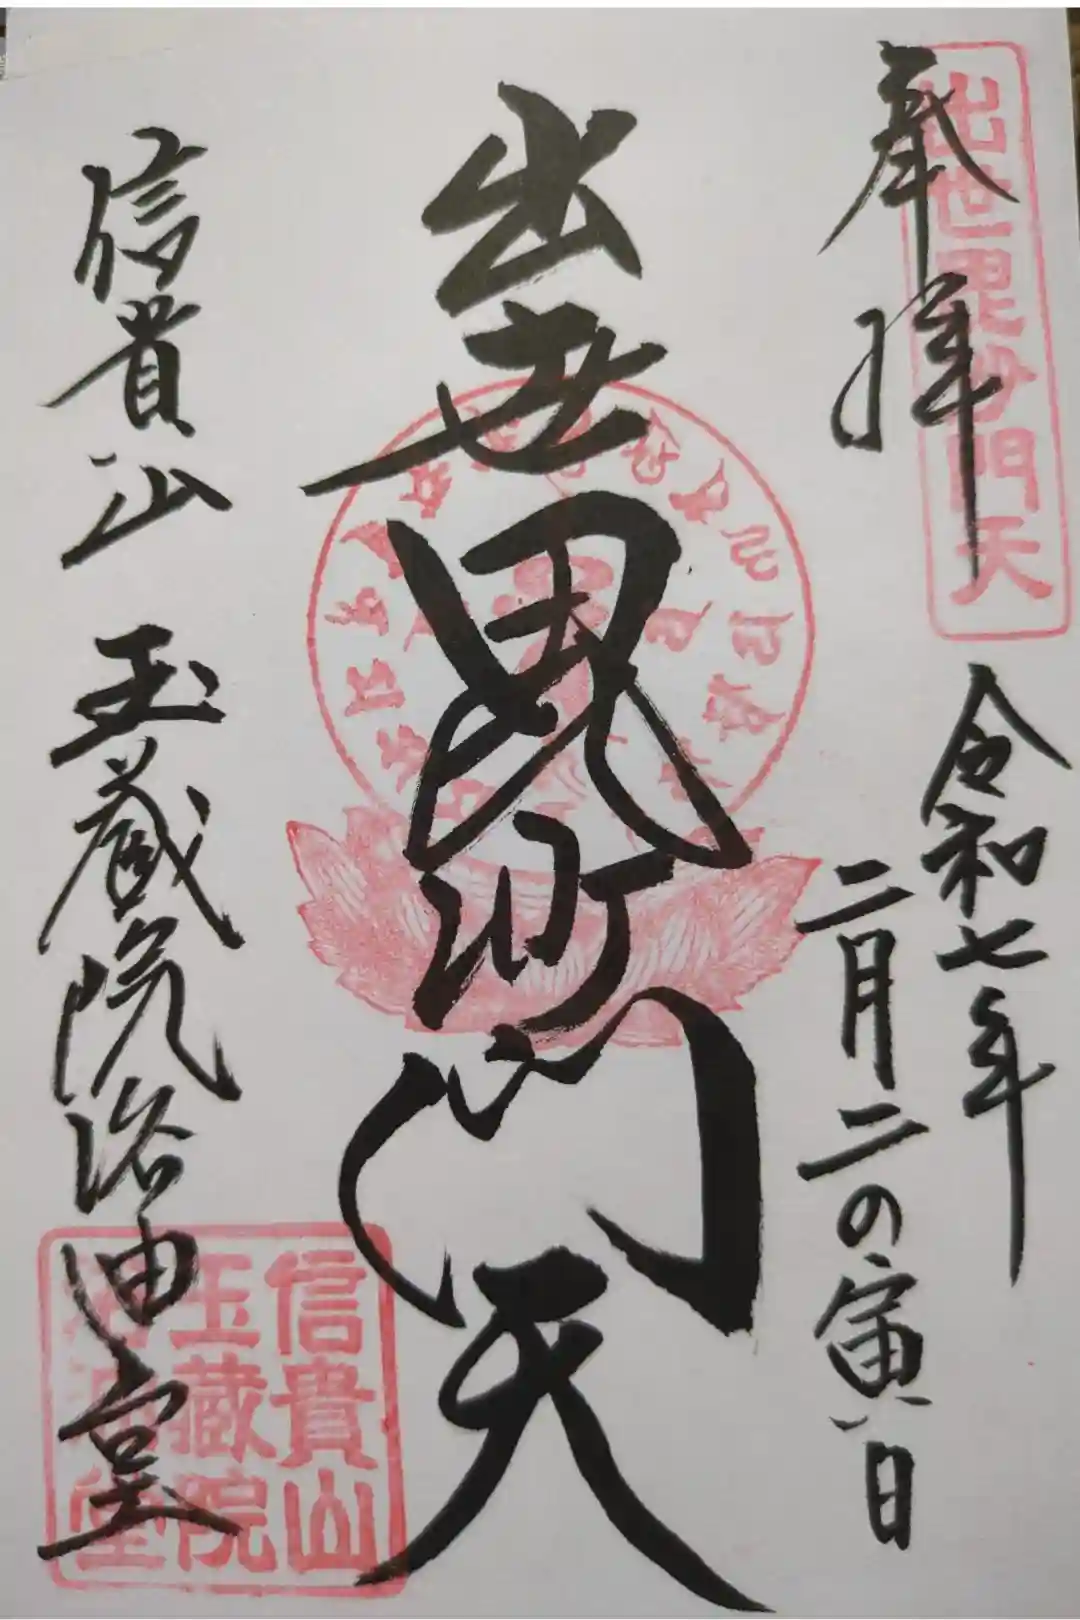 奉拝
出世毘沙門天
令和七年
二月二の寅日
出世毘沙門天
信貴山 玉蔵院浴油堂
信貴山
玉蔵院
浴油堂